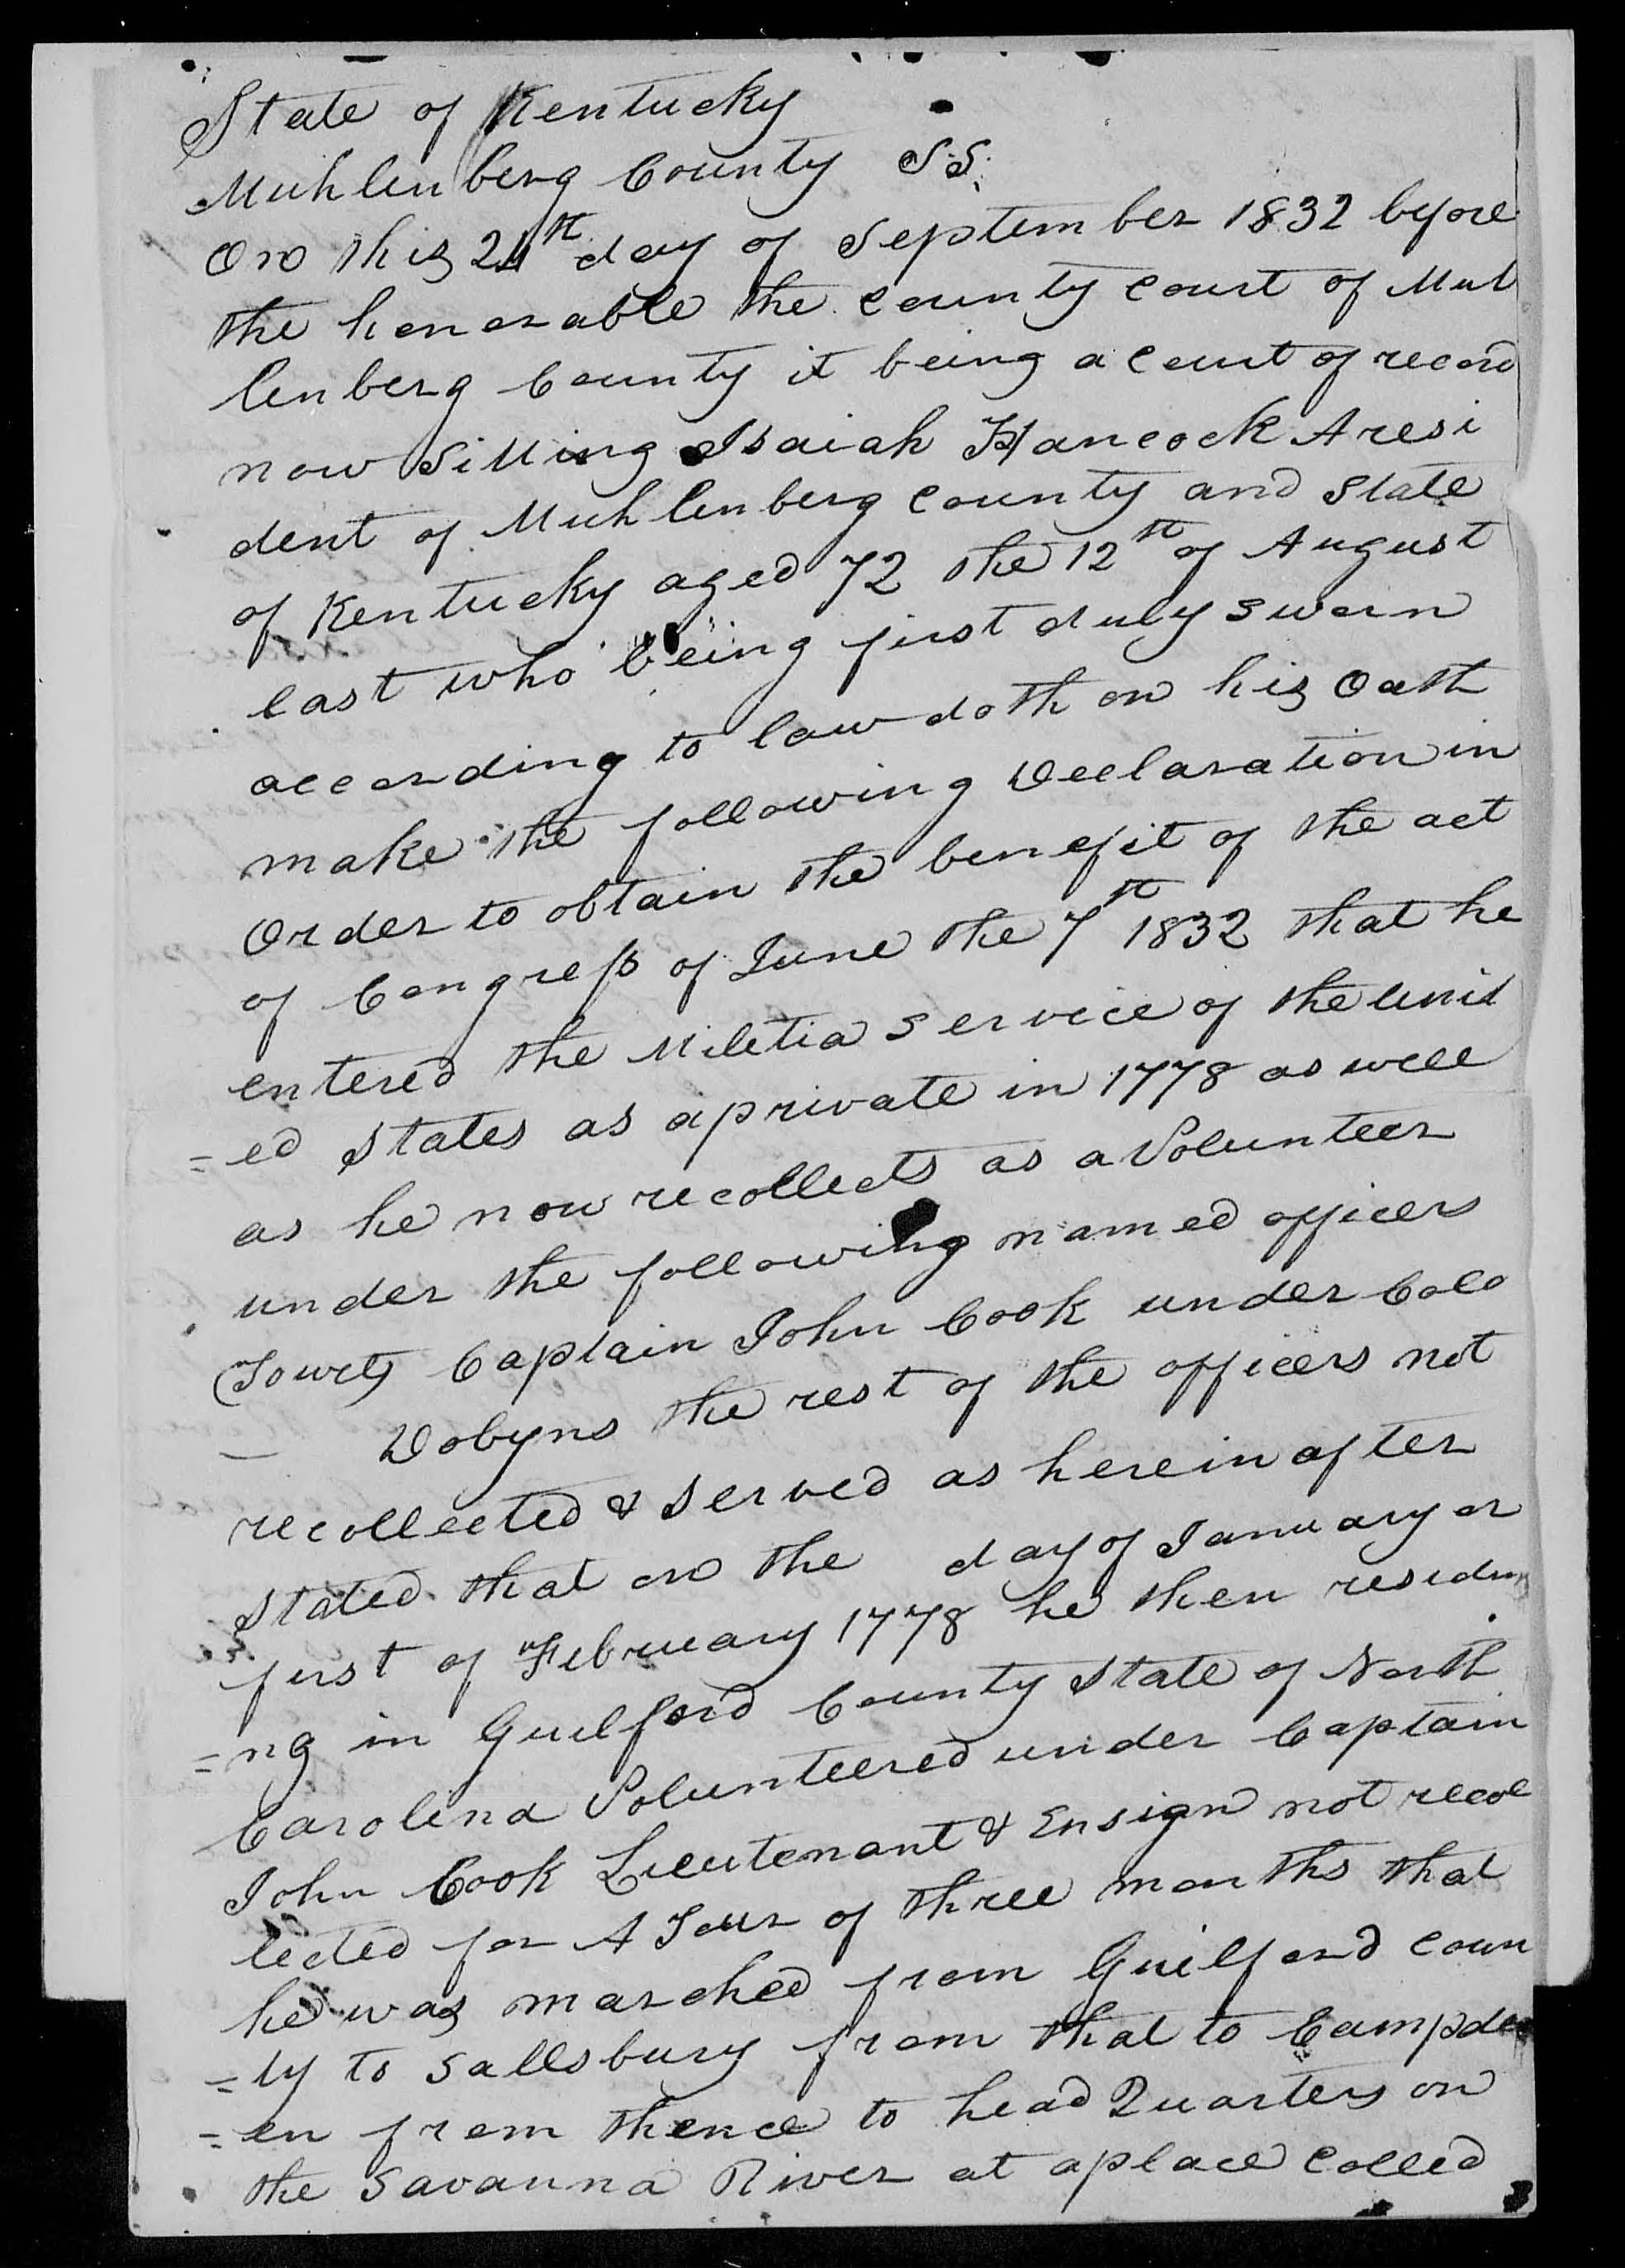 State of Kentucky
Muhlenberg County S.S.
On this 24th day of September 1832 before
the honorable the county court of Muh
lenberg County it being a court of record
now Sitting Isaiah Hancock A resi
dent of Muhlenberg county and State
of Kentucky aged 72 the 12th of August
last who being first duly sworn
according to law doth on his Oath
make the following Declaration in
Order to obtain the benefit of the act
of Congress of June the 7th 1832 that he
entered the Miletia service of the unit
=ed States as a private in 1778 as well
as he now recollects as a Volunteer
under the following named officers
Captain John Cook under Colo
Dobyns the rest of the officers not
recollected & Served as herein after
Stated that on the day of January or
first of February 1778 he then residi
=ng in Guilford County State of North
Carolina Volunteered under Captain
John Cook Lieutenant & Ensign not recol
lected for A Tour of three months that
he was marched from Guilford coun
=ty to Sallsbury from that to Campd
=en from thence to head Quarters on
the Savanna River at a place Called